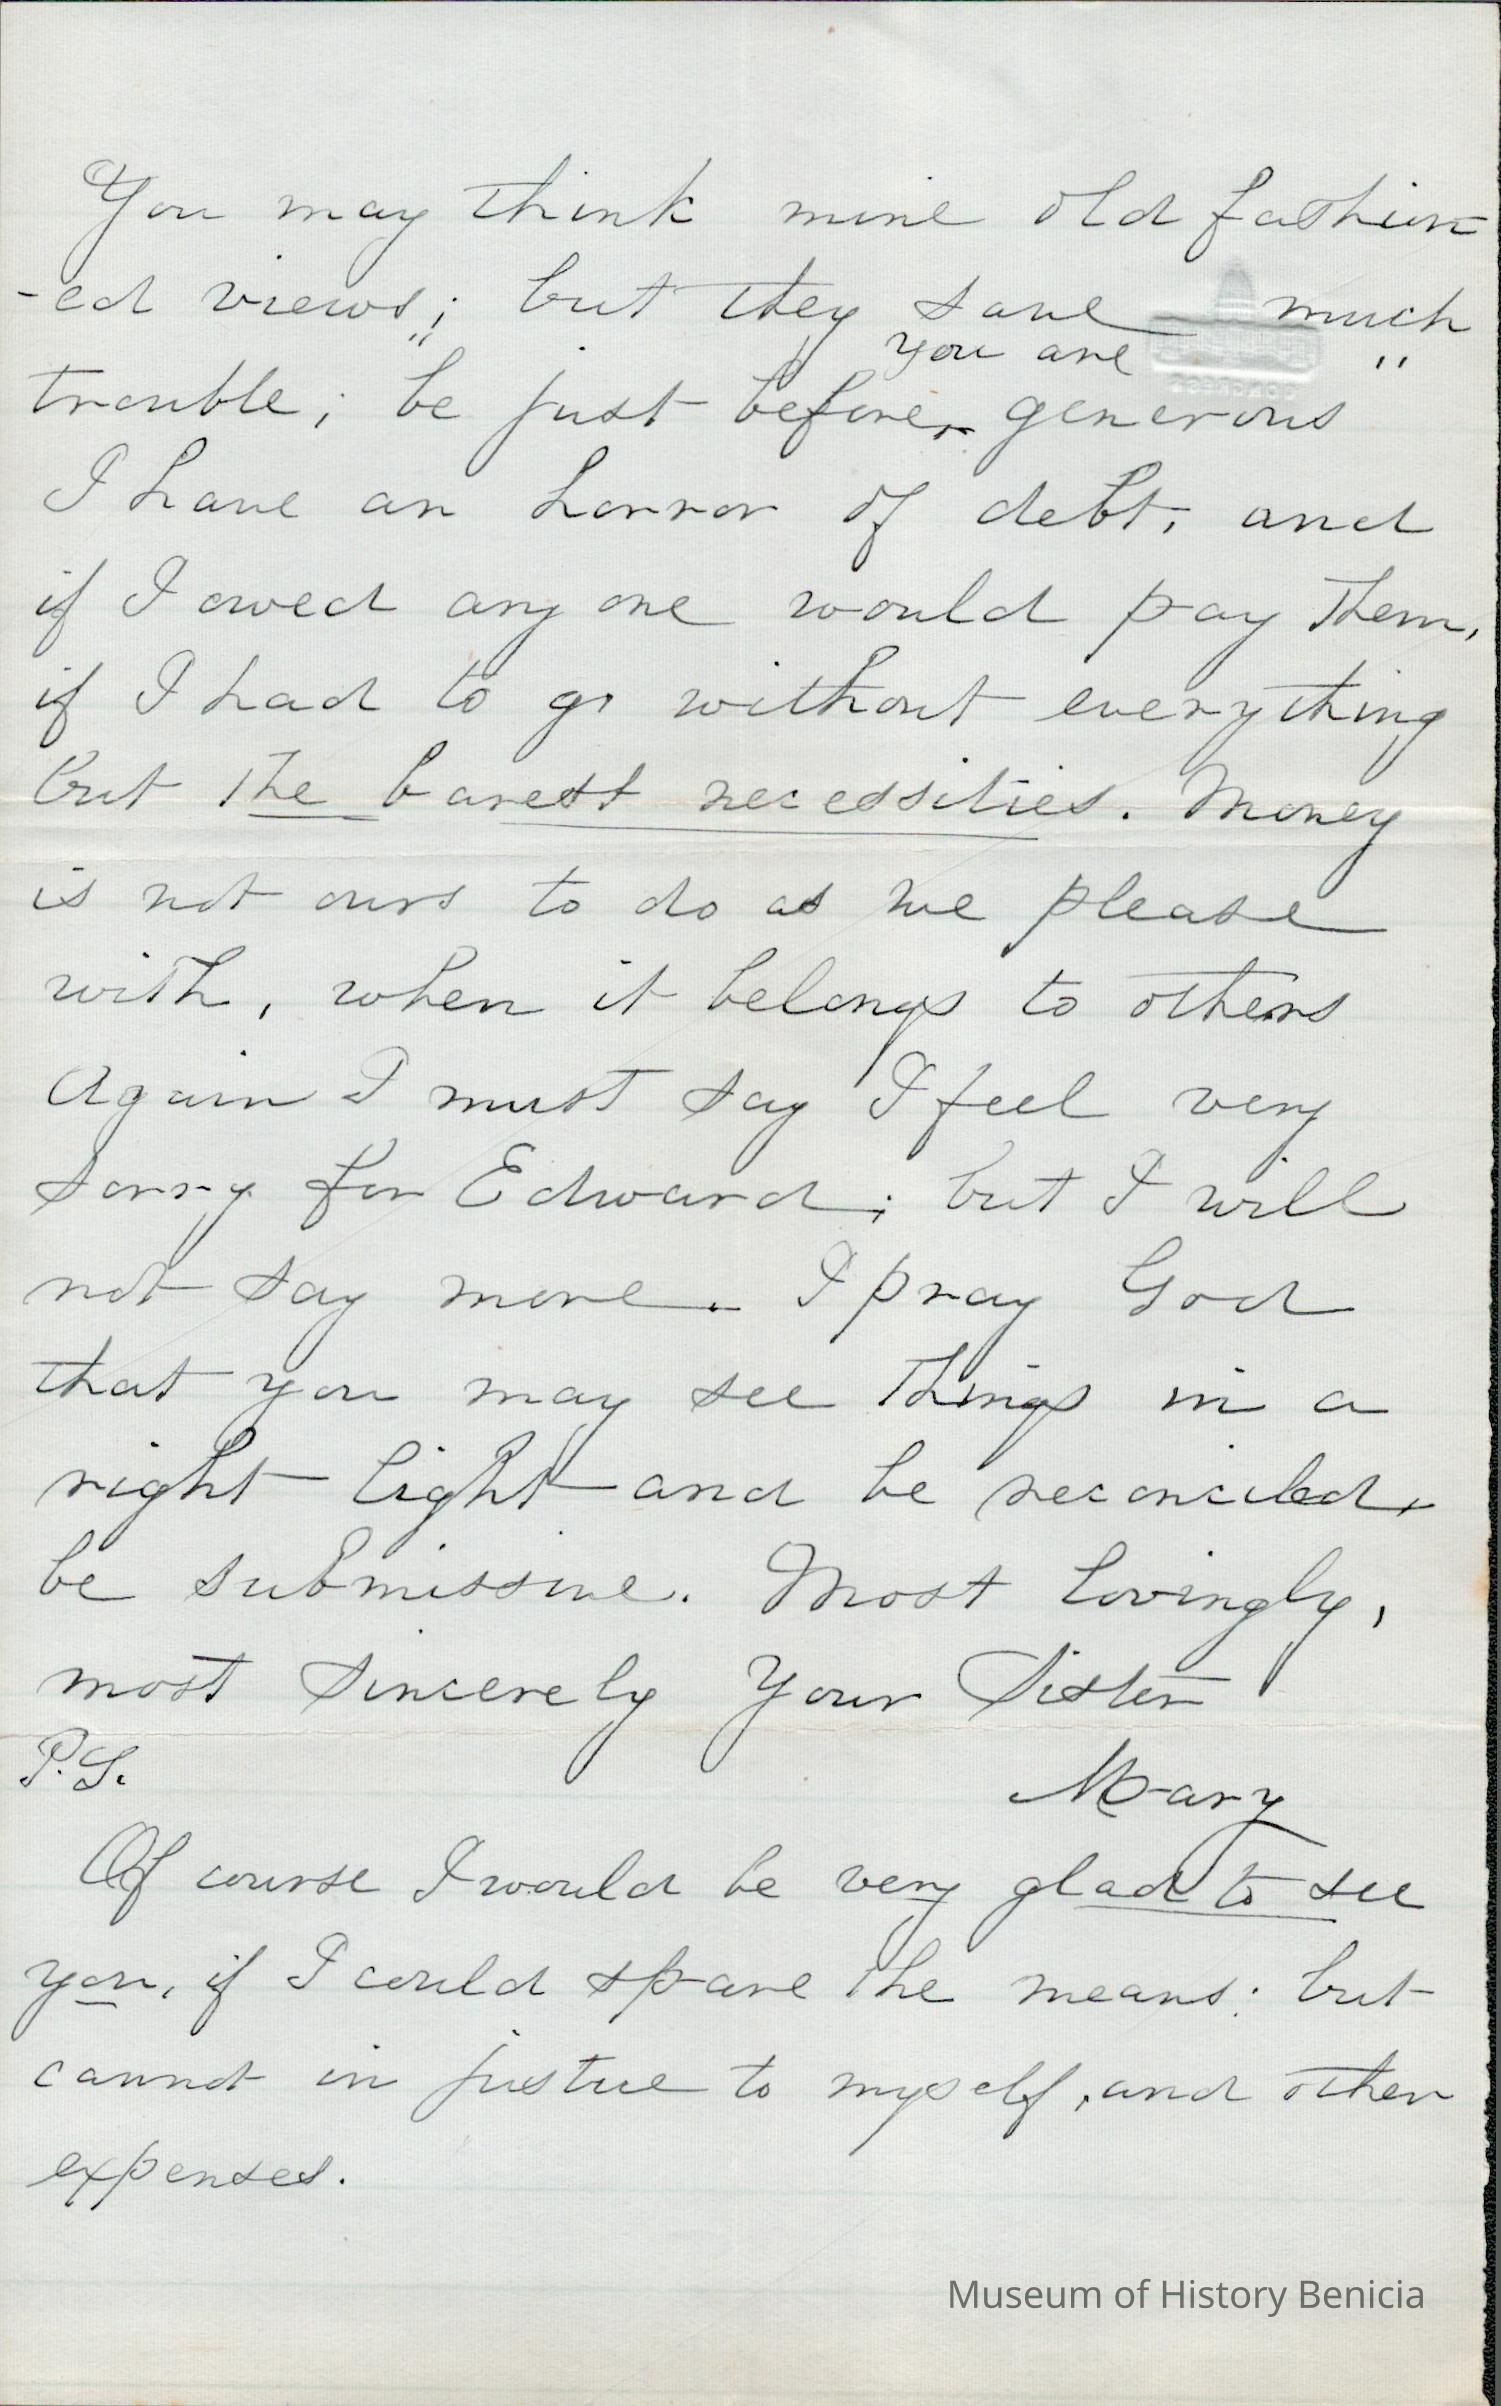 You may think mine old fashion
-ed views; but they save much
" you are "
trouble; be just before generous
I have an horror of debt, and
if I owed any one would pay them,
if I had to go without everything
but the barest necessities. Money
is not ours to do as we please
with, when it belongs to others
Again I must say I feel very
sorry for Edward; but I will
not say more. I pray God
that you may see things in a
right light and be reconciled,
be submissive. Most lovingly,
most sincerely Your Sister
P.S.
Mary
Of course I would be very glad to see
you, if I could spare the means: but
cannot in justice to myself, and other
expenses.
Museum of History Benicia